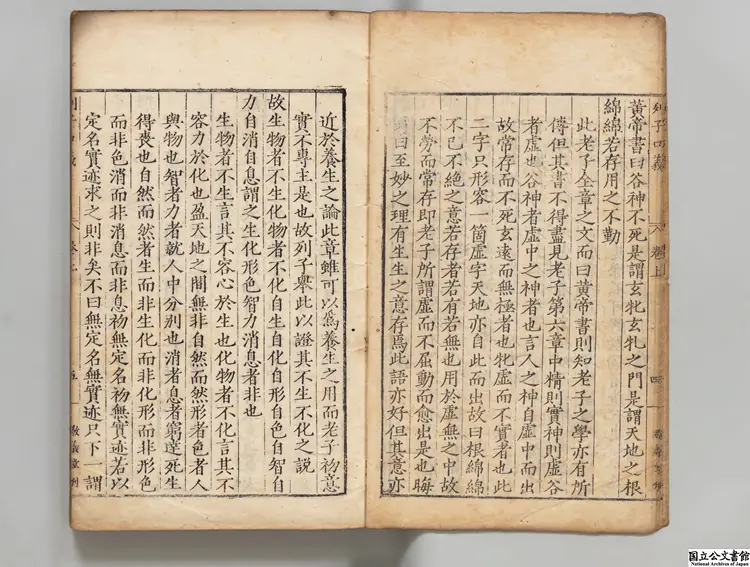 黃帝書曰谷神不死是謂玄牝玄牝之門是謂天地之根
綿綿若存用之不勤
此老子全章之文而曰黃帝書則知老子之學亦有所
傳但其書不得盡見老子第六章中精則實神則虛谷
者虛也谷神者虛中之神者也言人之神自虛中而出
故常存而不死玄遠而無極者也牝虛而不實者也此
二字只形容一箇虛字天地亦自此而出故曰根綿綿
不已不絕之意若存者若有若無也用於虛無之中故
不勞而常存即老子所謂虛而不屈動而愈出是也晦
曰至妙之理有生生之意存焉此語亦好但其意亦
列子口義
卷上
四
近於養生之論此章雖可以爲養生之用而老子初意
實不專主是也故列子舉此以證其不生不化之說
故生物者不生化物者不化自生自化自形自色自智自
力自消自息謂之生化形色智力消息者非也
生物者不生言其不容心於生也化物者不化言其不
容力於化也盈天地之間無非自然而然形者色者人
與物也智者力者就人中分別也消者息者窮達死生
得喪也自然而然者生而非生化而非化形而非形色
而非色消而非消息而非息初無定名初無實迹若以
定名實迹求之則非矣不曰無定名無實迹只下一謂
五
國立公文書館
National Archives of Japan